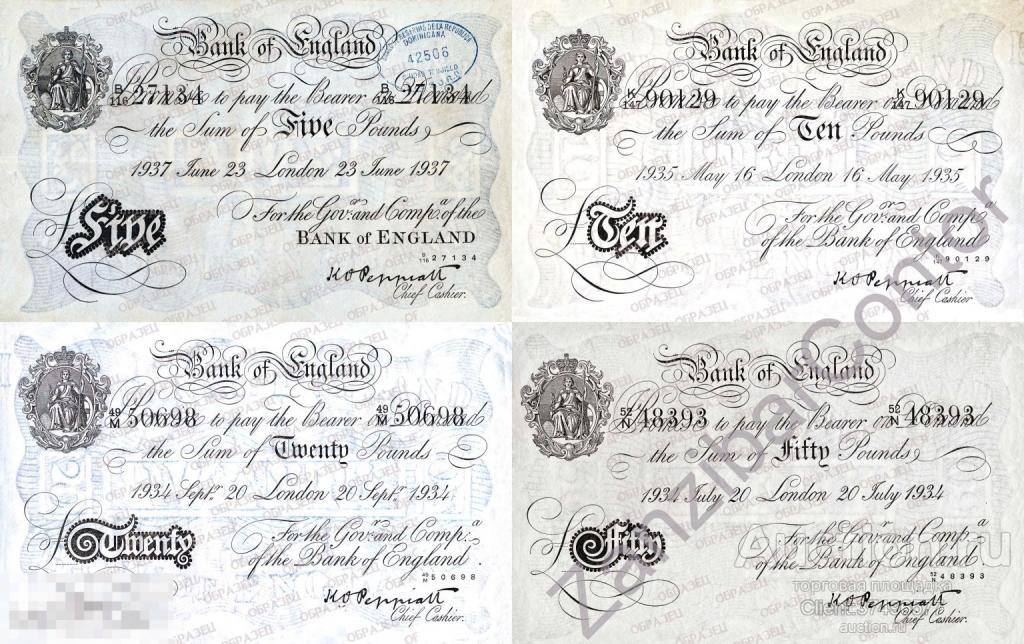 Bank of England
B/116 27134 to pay the Bearer on Demand B/116 27134
the Sum of Five Pounds
1937 June 23 London 23 June 1937
For the Govr. and Compa. of the
BANK of ENGLAND
£Five
B/116 27134
K O Peppiatt
Chief Cashier.
DOMINICANA
42506
Bank of England
K/147 90129 to pay the Bearer on Demand K/147 90129
the Sum of Ten Pounds
1935 May 16 London 16 May 1935
For the Govr. and Compa.
of the Bank of England
£Ten
90129
K O Peppiatt
Chief Cashier
Bank of England
49/M 50698 to pay the Bearer on Demand 49/M 50698
the Sum of Twenty Pounds
1934 Septr. 20 London 20 Septr. 1934
For the Govr. and Compa.
of the Bank of England
£Twenty
49/M 50698
K O Peppiatt
Chief Cashier
Bank of England
52/N 48393 to pay the Bearer on Demand 52/N 48393
the Sum of Fifty Pounds
1934 July 20 London 20 July 1934
For the Govr. and Compa.
of the Bank of England
£Fifty
52/N 48393
K O Peppiatt
Chief Cashier.
ОБРАЗЕЦ
ZanzibarComor
торговая площадка
auction.ru